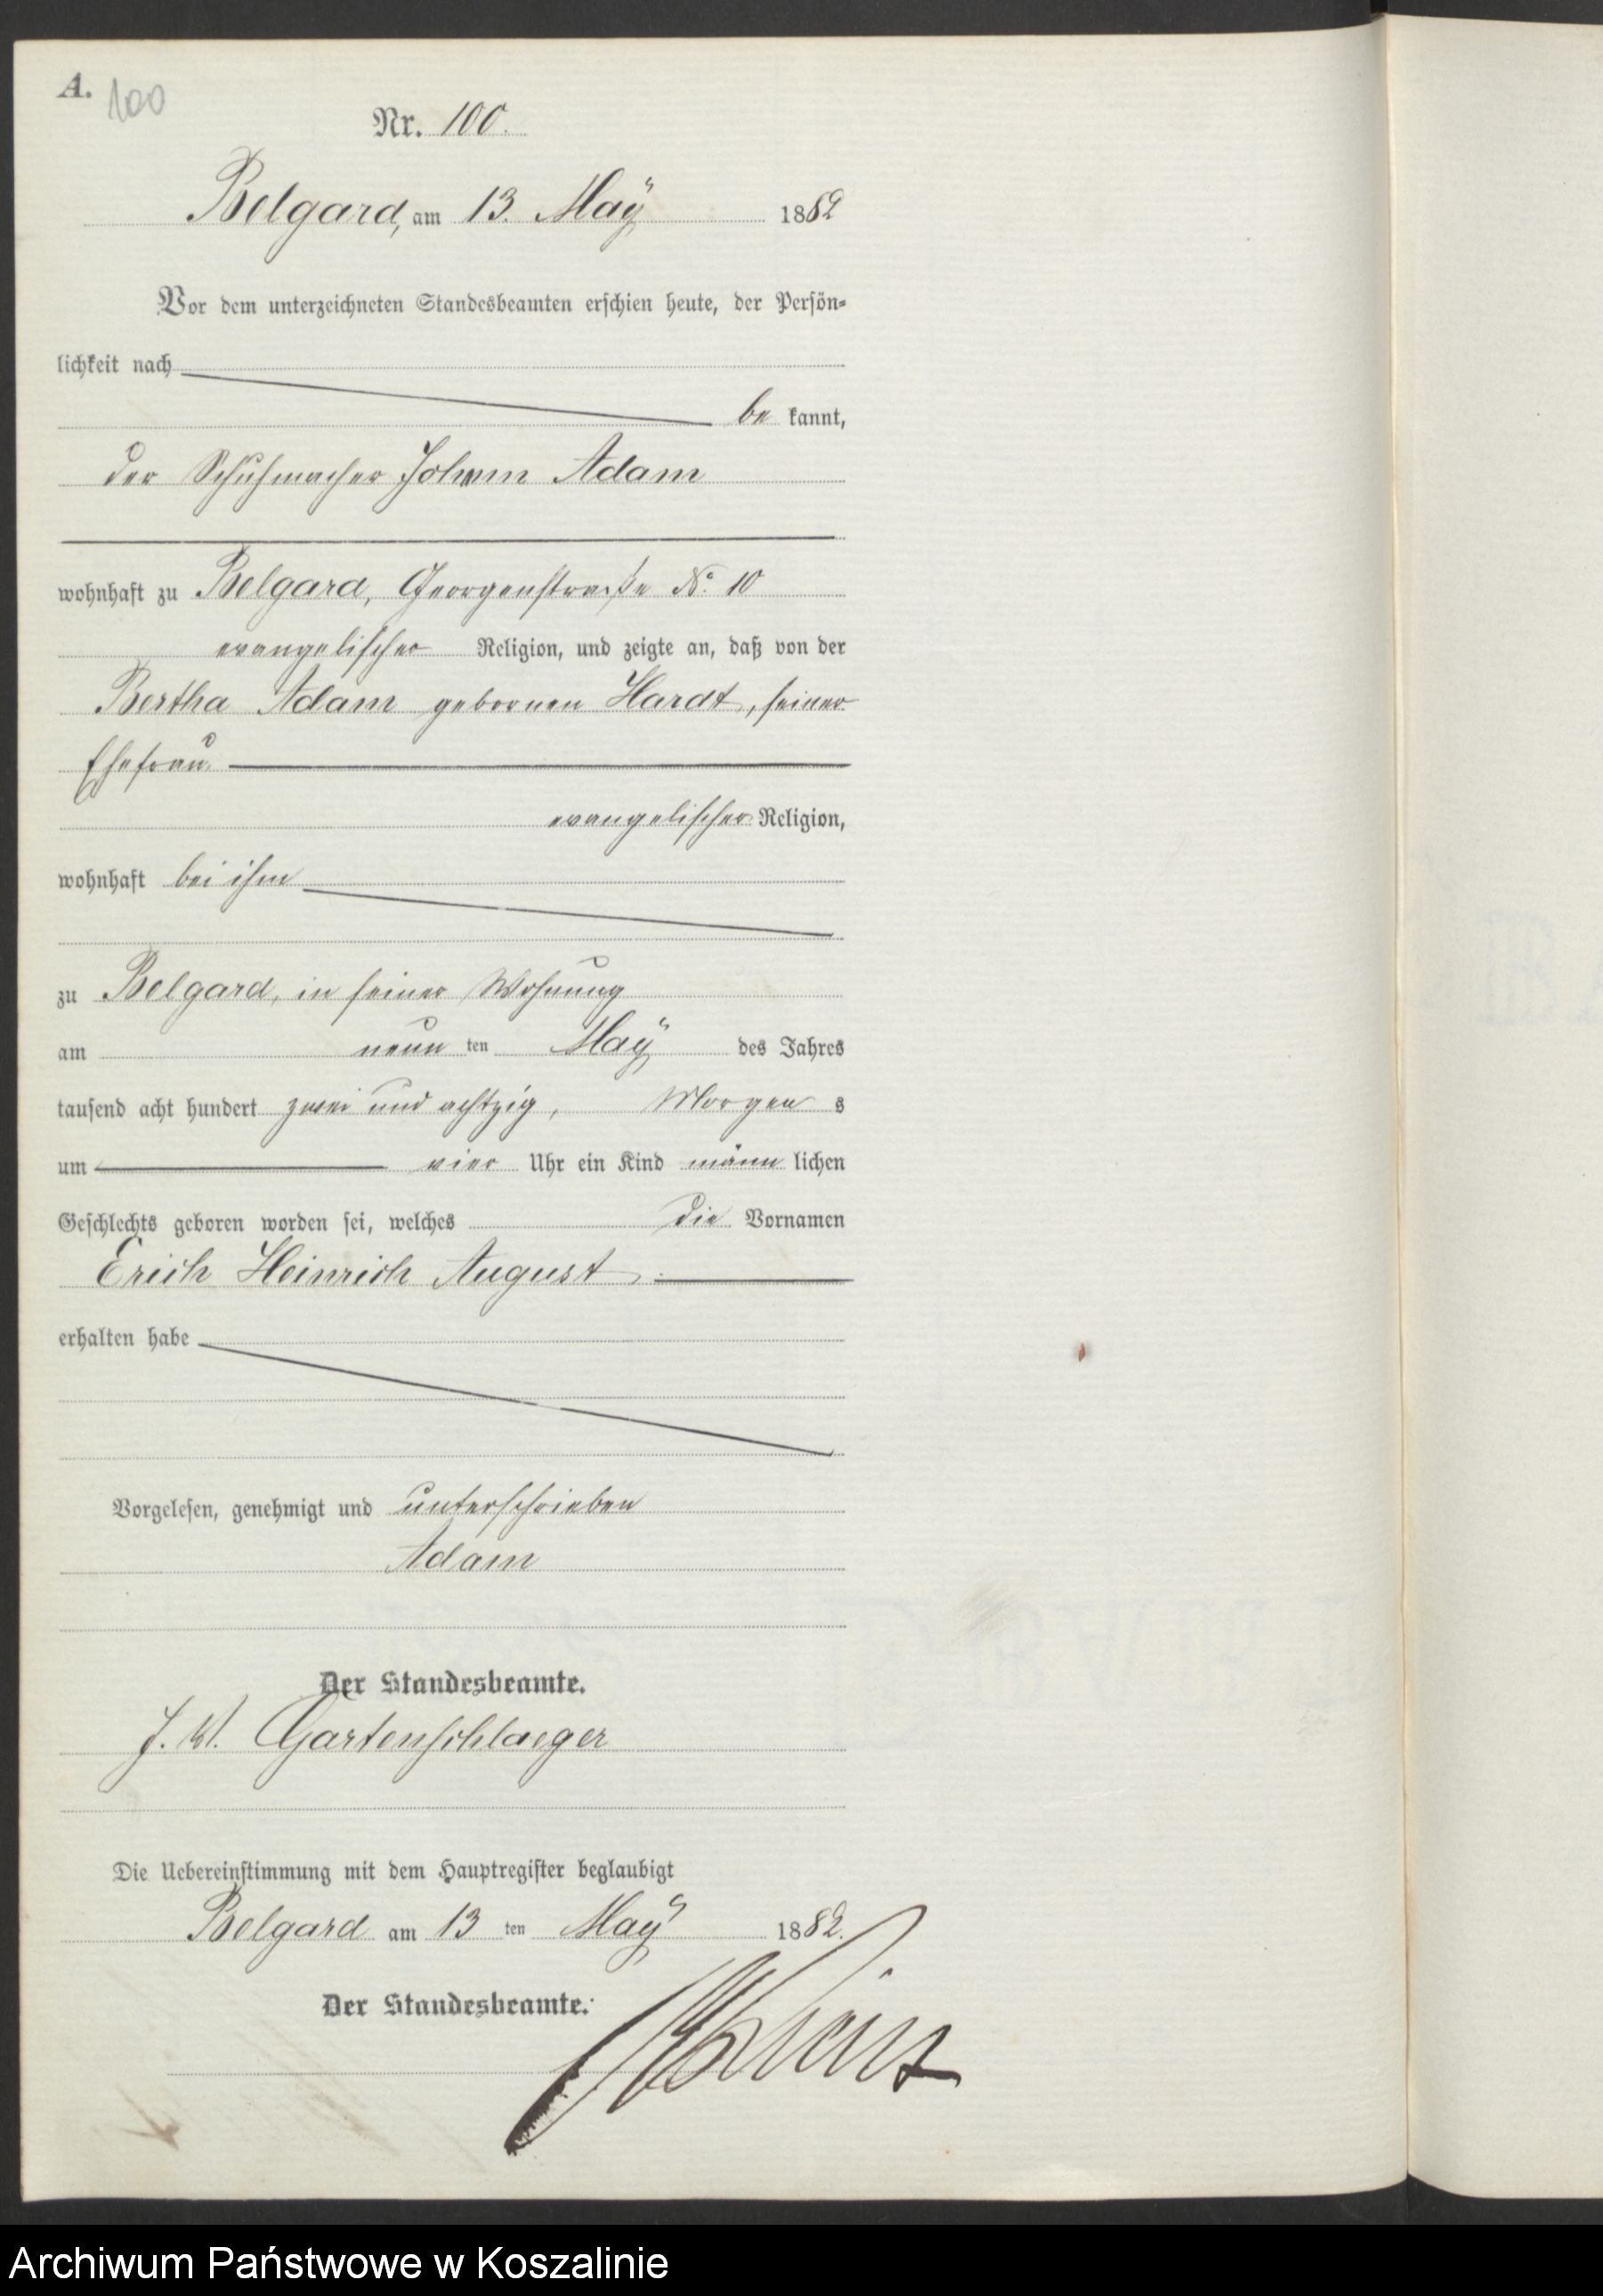 A. 100
Nr. 100.
Belgard, am 13. Maÿ 1882
Vor dem unterzeichneten Standesbeamten erschien heute, der Persön-
lichkeit nach
be kannt,
der Schuhmacher Johann Adam
wohnhaft zu Belgard, Georgenstraße No. 10
evangelischer Religion, und zeigte an, daß von der
Bertha Adam gebornen Hardt, seiner
Ehefrau
evangelischer Religion,
wohnhaft bei ihm
zu Belgard, in seiner Wohnung
am neun ten Maÿ des Jahres
tausend acht hundert zwei und achtzig, Morgen s
um vier Uhr ein Kind männ lichen
Geschlechts geboren worden sei, welches die Vornamen
Erich Heinrich August
erhalten habe
Vorgelesen, genehmigt und unterschrieben
Adam
Der Standesbeamte.
Gartenschlaeger
Die Uebereinstimmung mit dem Hauptregister beglaubigt
Belgard am 13 ten Maÿ 1882.
Der Standesbeamte.
Archiwum Państwowe w Koszalinie